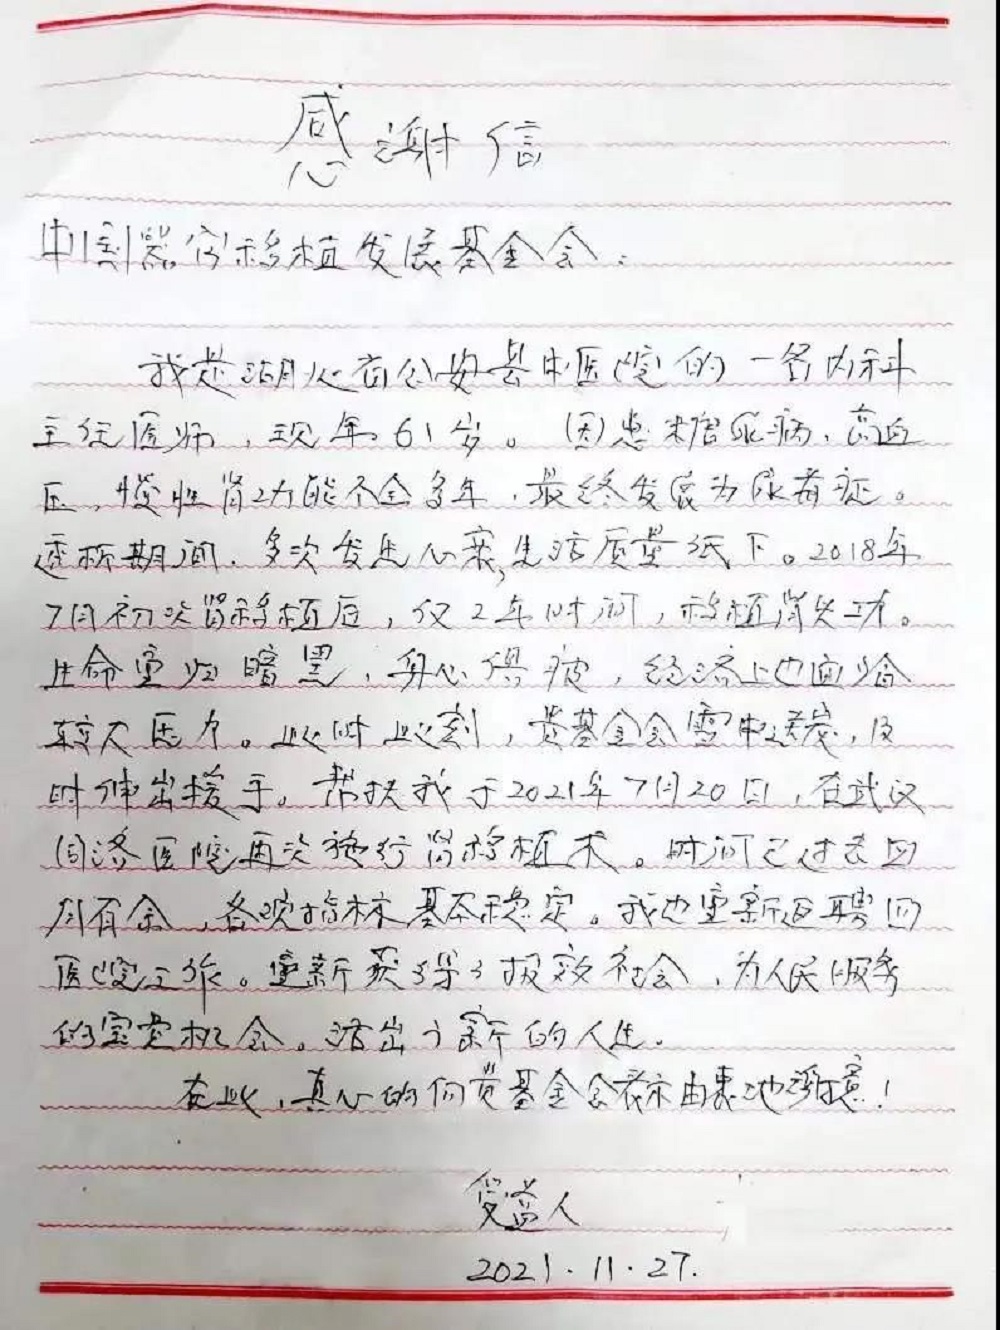 感谢信
中国器官移植发展基金会：
我是湖北省公安县中医院的一名内科
主任医师，现年61岁。因患糖尿病、高血
压，慢性肾功能不全多年，最终发展为尿毒症。
透析期间，多次发生心衰，生活质量低下。2018年
7月初次肾移植后，仅2年时间，移植肾失功。
生命重归暗黑，身心俱疲，经济上也面临
较大压力。此时此刻，贵基金会雪中送炭，及
时伸出援手。帮扶我于2021年7月20日，在武汉
同济医院再次施行肾移植术。时间已过去四
月有余，各项指标基本稳定。我也重新返聘回
医院工作。重新获得了报效社会，为人民服务
的宝贵机会。活出了新的人生。
在此，真心的向贵基金会表示由衷地谢意！
受益人
2021.11.27.